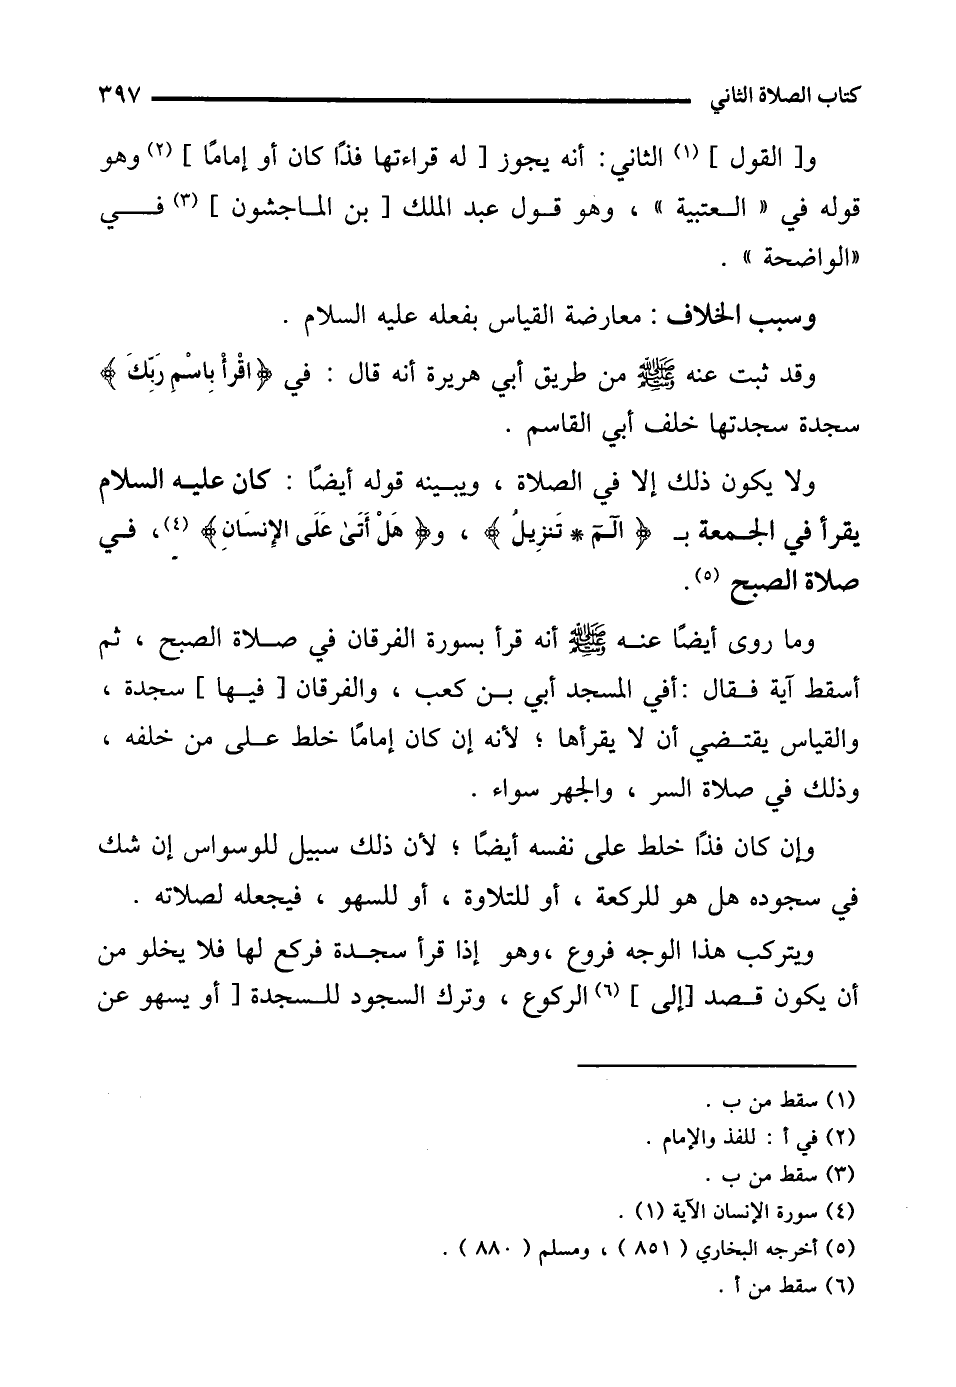 كتاب الصلاة الثاني ٣٩٧
و[ القول ] (١) الثاني : أنه يجوز [ له قراءتها فذًا كان أو إمامًا ] (٢) وهو
قوله في « العتبية » ، وهو قول عبد الملك [ بن الماجشون ] (٣) في
«الواضحة » .
وسبب الخلاف : معارضة القياس بفعله عليه السلام .
وقد ثبت عنه ﷺ من طريق أبي هريرة أنه قال : في ﴿ اقْرَأْ بِاسْمِ رَبِّكَ ﴾
سجدة سجدتها خلف أبي القاسم .
ولا يكون ذلك إلا في الصلاة ، ويبينه قوله أيضًا : كان عليه السلام
يقرأ في الجمعة بـ ﴿ الٓمٓ * تَنزِيلُ ﴾ ، و﴿ هَلْ أَتَىٰ عَلَى الإِنسَانِ﴾ (٤)، في
صلاة الصبح (٥).
وما روى أيضًا عنه ﷺ أنه قرأ بسورة الفرقان في صلاة الصبح ، ثم
أسقط آية فقال :أفي المسجد أبي بن كعب ، والفرقان [ فيها ] سجدة ،
والقياس يقتضي أن لا يقرأها ؛ لأنه إن كان إمامًا خلط على من خلفه ،
وذلك في صلاة السر ، والجهر سواء .
وإن كان فذًا خلط على نفسه أيضًا ؛ لأن ذلك سبيل للوسواس إن شك
في سجوده هل هو للركعة ، أو للتلاوة ، أو للسهو ، فيجعله لصلاته .
ويتركب هذا الوجه فروع ،وهو إذا قرأ سجدة فركع لها فلا يخلو من
أن يكون قصد [إلى ] (٦) الركوع ، وترك السجود للسجدة [ أو يسهو عن
(١) سقط من ب .
(٢) في أ : للفذ والإمام .
(٣) سقط من ب .
(٤) سورة الإنسان الآية (١) .
(٥) أخرجه البخاري ( ٨٥١ ) ، ومسلم ( ٨٨٠ ) .
(٦) سقط من أ .